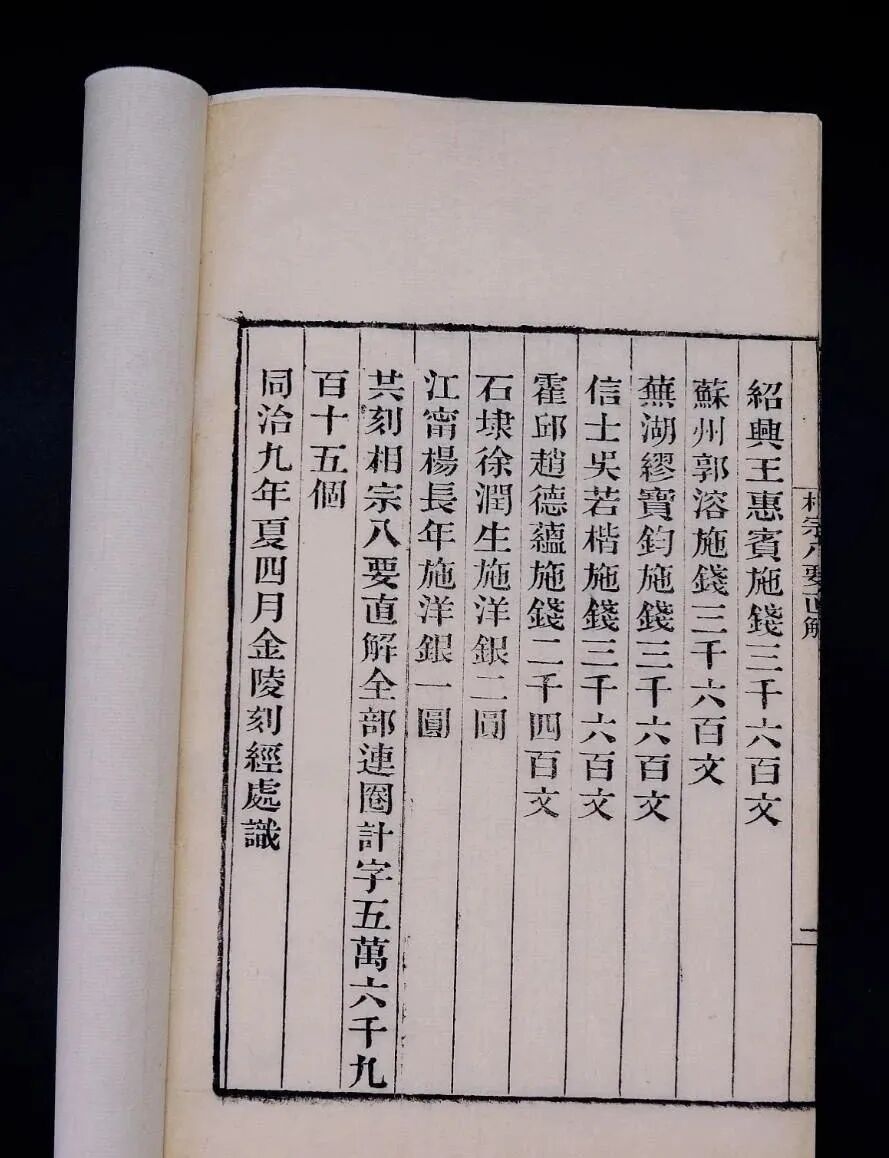 相宗八要直解
二
紹興王惠賓施錢三千六百文
蘇州郭溶施錢三千六百文
蕪湖繆寶鈞施錢三千六百文
信士吳若楷施錢三千六百文
霍邱趙德蘊施錢二千四百文
石埭徐潤生施洋銀二圓
江甯楊長年施洋銀一圓
共刻相宗八要直解全部連圈計字五萬六千九
百十五個
同治九年夏四月金陵刻經處識